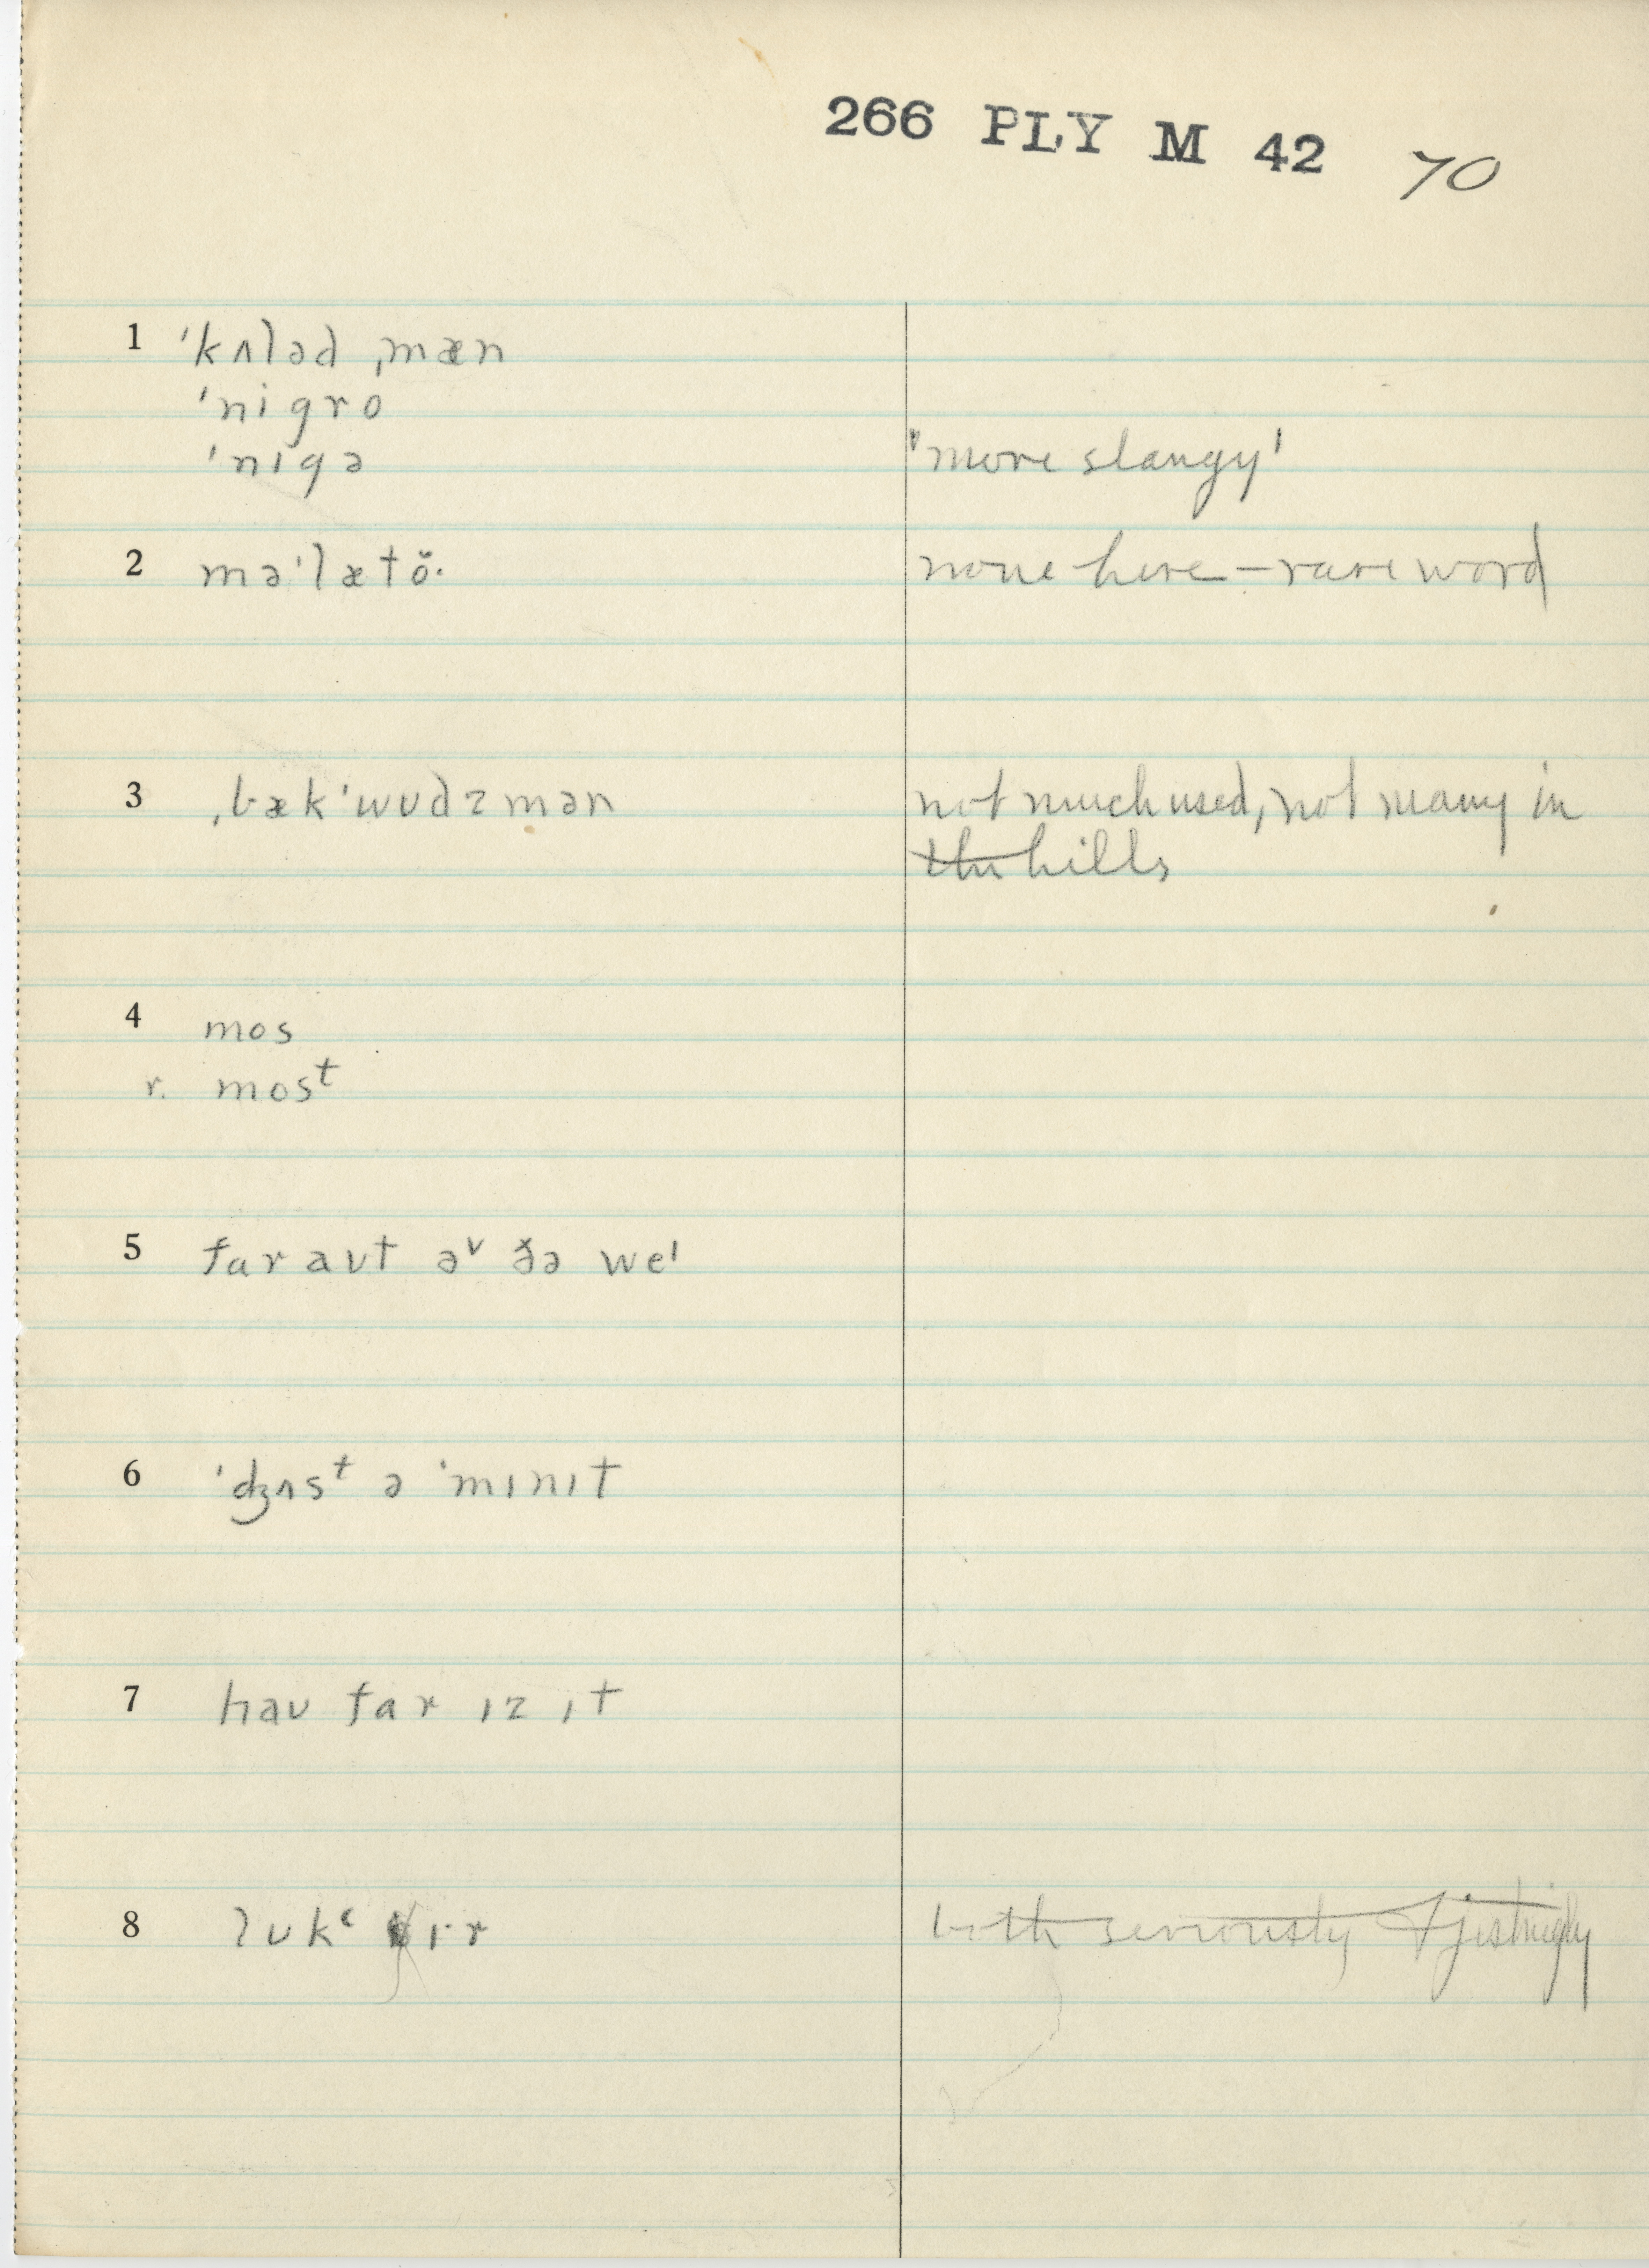 266 PLY M 42 70
1 ˈkʌləd ˌmæn
ˈnigro
ˈnɪgə 'more slangy'
2 məˈlætö̆· none here – rare word
3 ˌbækˈwʊdzmən not much used, not many in
the hills
4 mos
r. mosᵗ
5 far aʊt əᵛ ðə weᶦ
6 ˈdʒʌsᵗ ə ˈmɪnɪt
7 haʊ far ɪz ɪt
8 lʊkʻ ɪ·r both seriously & jestingly